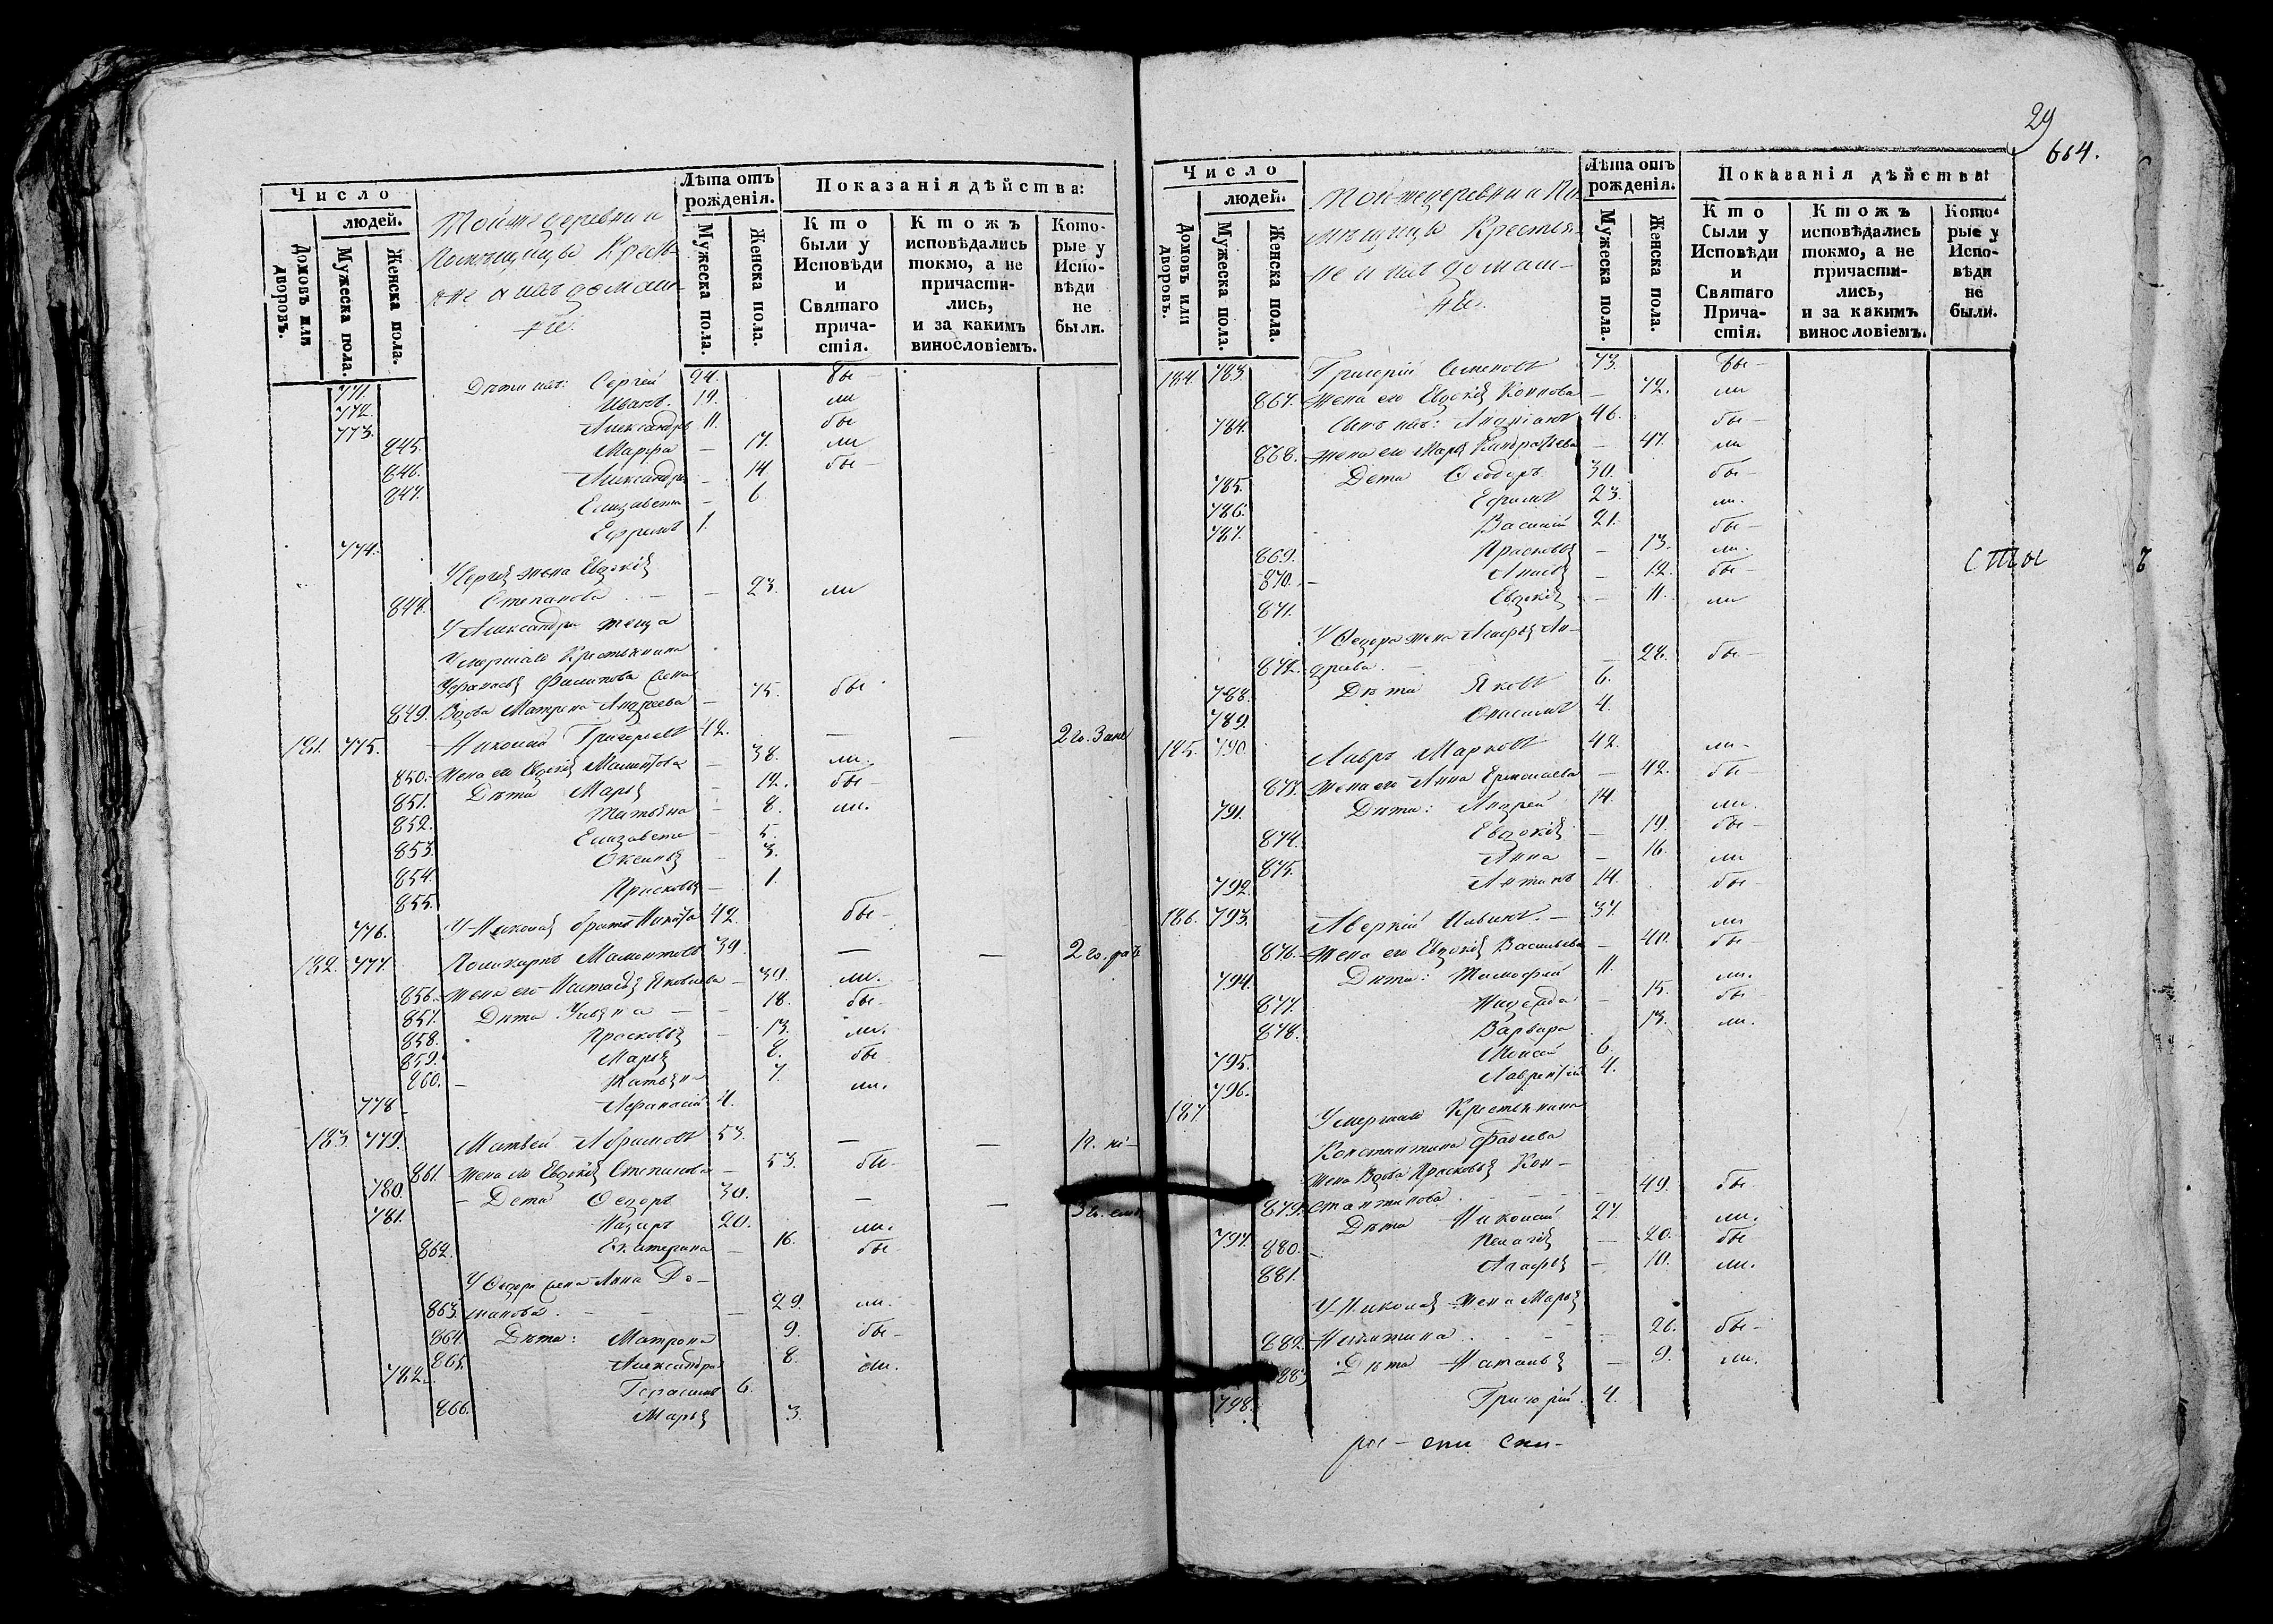 Число
людей.
Домовъ или дворовъ.
Мужеска пола.
Женска пола.
Тойже деревни
Помѣщицы Кресть-
яне и ихъ домаш-
ніе.
Лѣта отъ рожденія.
Мужеска пола.
Женска пола.
Показанія дѣйства:
Кто были у Исповѣди и Святаго причастія.
Ктожъ исповѣдались токмо, а не причасти-лись, и за какимъ винословіемъ.
Кото-рые у Испо-вѣди не были.
771. Дѣти ихъ: Сергѣй 24. бы-
772. Иванъ 19. ли
773. Александръ 11. бы
845. Марфа – 17. ли
846. Александра – 14. бы-
847. Елизавета – 6.
774. Ефремъ 1.
У Сергѣя жена Евдокія
848. Степанова – 23. ли
У Александра теща
Умершаго Крестьянина
Филипова жена
849. Вдова Матрена Андреева – 75. бы-
181. 775. Николай Григорьевъ 42. – – 2 го.
850. Жена его Евдокія – 38. ли.
851. Дѣти Марья – 12. бы-
852. Татьяна – 8. ли.
853. Елизавета – 5.
854. Оксинья – 3.
855. Прасковья – 1.
776. У Николая братъ Никита 42. бы-
182. 777. Поликарпъ Мамонтовъ 39. – – 2 го.
856. Жена его Настасья Яковлева – 39. ли.
857. Дѣти Ульяна – 18. бы-
858. Прасковья – 13. ли.
859. Марья 8. бы
860. Татьяна 7. ли.
778 Афанасій 4.
183. 779. Матвей Абрамовъ 53. – –
861. Жена его Евдокія Степанова – 53. бы-
780. Дети Ѳедоръ 30. – –
781. Назаръ 20. ли.
862. Екатерина – 16. бы
У Ѳедора жена Анна Ро-
863. манова. – 29. ли.
864. Дѣти: Матрона 9. бы-
865. Александра 8. ли.
782. Герасимъ 6.
866. Марья 3.
29
664.
Число
людей.
Домовъ или дворовъ.
Мужеска пола.
Женска пола.
Тойже деревни По-
мѣщицы Крестья-
не и ихъ домаш-
ніе.
Лѣта отъ рожденія.
Мужеска пола.
Женска пола.
Показанія дѣйства:
Кто были у Исповѣди и Святаго Прича-стія.
Ктожъ исповѣдались токмо, а не причасти-лись, и за какимъ винословіемъ.
Кото-рые у Испо-вѣди не были.
184. 783. Григорій Семеновъ 73. бы-
867. Жена его Евдокія Конова – 72. ли
784. Сынъ ихъ: Андріанъ 46. бы-
868. Жена его Марья – 47. ли
785. Дети Ѳедоръ 30. бы-
786. Ефимъ 23. ли.
787. Василій 21. бы-
869. Прасковья – 13. ли.
870. Анисья – 12. бы-
871. Евдокія – 11. ли
У Ѳедора жена Агафья Ан-
872. дреева. – 28. бы-
788. Дѣти Яковъ 6.
789. 4.
185. 790 Лавръ Марковъ 42. ли-
873. Жена его Анна Ермолаева – 42. бы-
791. Дѣти: Андрей 14. ли.
874. Евдокія – 19. бы-
875. Анна – 16. ли
792. Антипъ 14. бы-
186. 793. Аверкій – 37. ли
876. Жена его Евдокія Васильева – 40. бы-
794. Дѣти: Тимофей 11. ли.
877. Надежда – 15. бы
878. Варвара 13. ли.
795. Моисей 6.
796. Лаврентій 4.
187. Умершаго Крестьянина
Константина Фадеева
Жена Вдова Прасковья Кон-
879. стантинова. – 49. бы-
797. Дѣти Николай 27. ли.
880. Пелагія – 20. бы
881. Агафья – 10. ли.
У Николая Жена Марья
882. Никитина. – 26. бы-
883 Дѣти Наталья – 9. ли.
798. Григорій. 4.